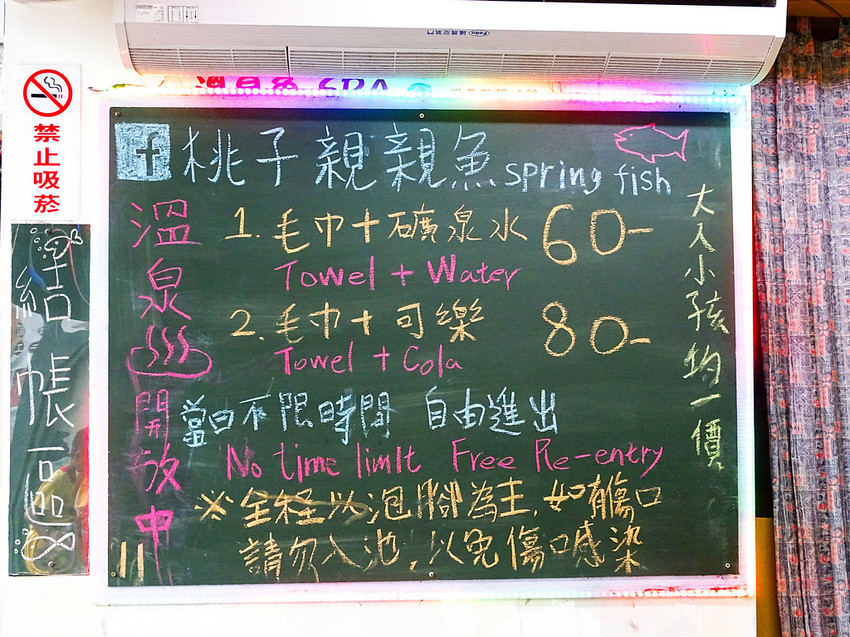 禁止吸菸
結帳區
f 桃子親親魚 spring fish
溫泉開放中
1. 毛巾+礦泉水 60-
Towel + Water
2. 毛巾+可樂 80-
Towel + Cola
當日不限時間 自由進出
No time limit Free Re-entry
※全程以泡腳為主,如有傷口
請勿入池,以免傷口感染
大人小孩均一價